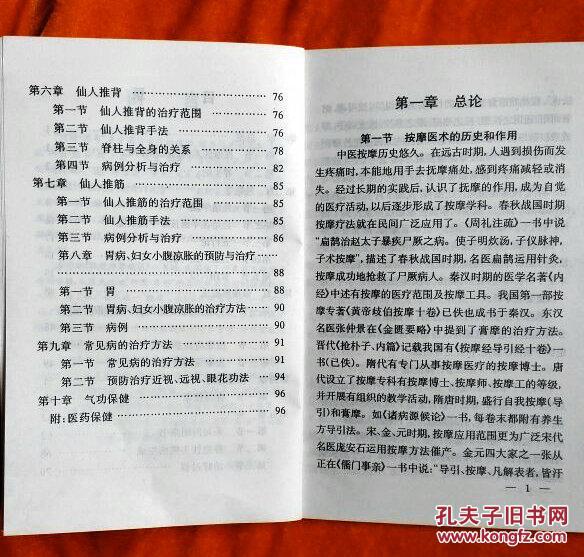 第六章 仙人推背 …………………… 76
第一节 仙人推背的治疗范围 …………… 76
第二节 仙人推背手法 …………………… 76
第三节 脊柱与全身的关系 ……………… 78
第四节 病例分析与治疗 ………………… 82
第七章 仙人推筋 …………………… 85
第一节 仙人推筋的治疗范围 …………… 85
第二节 仙人推筋手法 …………………… 85
第三节 病例分析与治疗 ………………… 86
第八章 胃病、妇女小腹凉胀的预防与治疗……
…………………… 88
第一节 胃 …………………… 88
第二节 胃病、妇女小腹凉胀的治疗方法 …… 90
第三节 病例 …………………… 90
第九章 常见病的治疗方法 …………… 91
第一节 常见病的治疗方法 …………… 91
第二节 预防治疗近视、远视、眼花功法 …… 94
第十章 气功保健 …………………… 96
附:医药保健 …………………… 96
第一章 总论
第一节 按摩医术的历史和作用
中医按摩历史悠久。在远古时期,人遇到损伤而发
生疼痛时,本能地用手去抚摩痛处,感到疼痛减轻或消
失。经过长期的实践后,认识了抚摩的作用,成为自觉
的医疗活动,以后逐步形成了按摩学科。春秋战国时期
按摩疗法就在民间广泛应用了。《周礼注疏》一书中说
“扁鹊治赵太子暴疾尸厥之病。使子明炊汤,子仪脉神,
子术按摩”,描述了春秋战国时期,名医扁鹊运用针灸、
按摩成功地抢救了尸厥病人。秦汉时期的医学名著《内
经》中述有按摩的医疗范围及按摩工具。我国第一部按
摩专著《黄帝歧伯按摩十卷》已佚也成书于秦汉。东汉
名医张仲景在《金匮要略》中提到了膏摩的治疗方法。
晋代《抢朴子、内篇》记载我国有《按摩经导引经十卷》一
书(已佚)。隋代有专门从事按摩医疗的按摩博士。唐
代设立了按摩专科有按摩博士、按摩师、按摩工的等级,
并开展有组织的教学活动,隋唐时期,盛行自我按摩(导
引)和膏摩。如《诸病源候论》一书,每卷末都附有养生
方导引法。宋、金、元时期,按摩应用范围更为广泛宋代
名医庞安石运用按摩方法催产。金元四大家之一张从
正在《儒门事亲》一书中说:“导引、按摩、凡解表者,皆汗
— 1 —
孔夫子旧书网